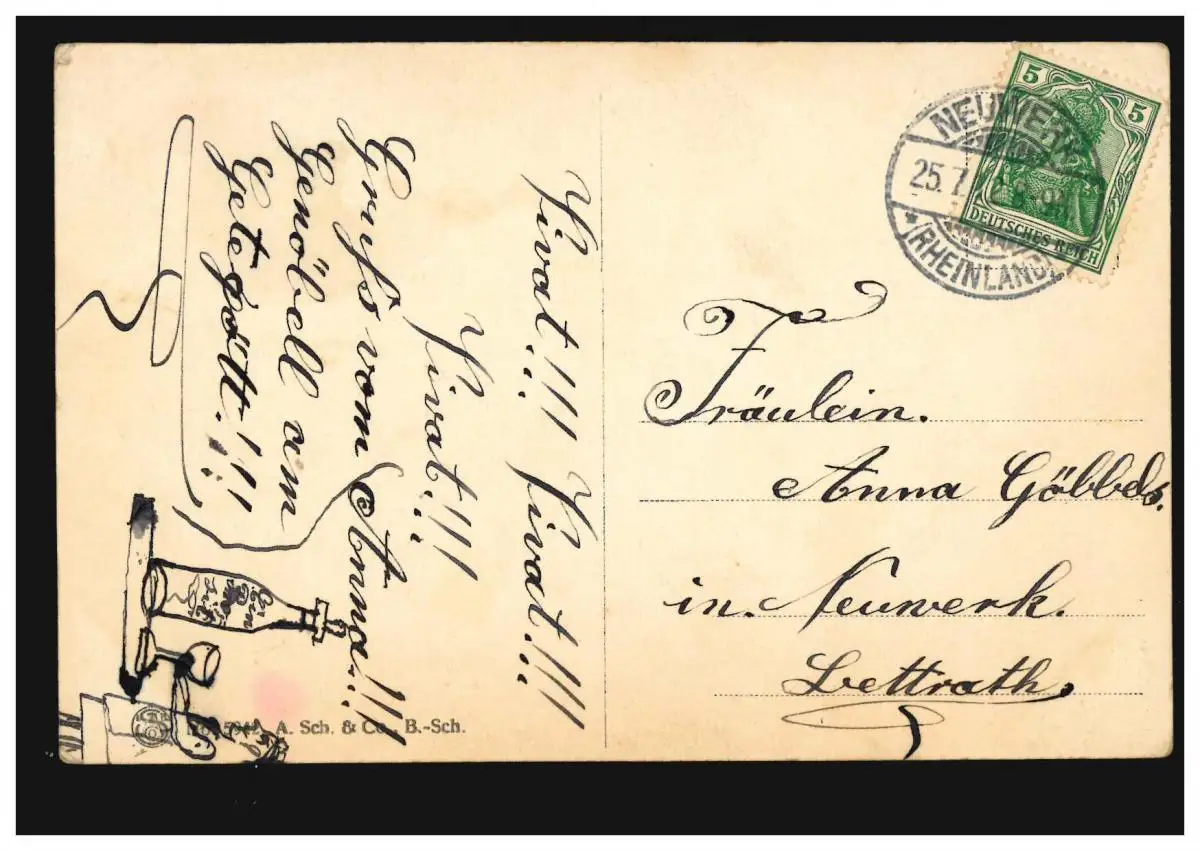 Vivat!!! Vivat!!!
Vivat!!!
Gruß vom Anna!!!
Genöbell am
Getspött!!!
NEUWERK
25.7.
(RHEINLAND)
5 5
DEUTSCHES REICH
Fräulein.
Anna Göbbels.
in. Neuwerk.
Bettrath,
A. Sch. & Co. B.-Sch.